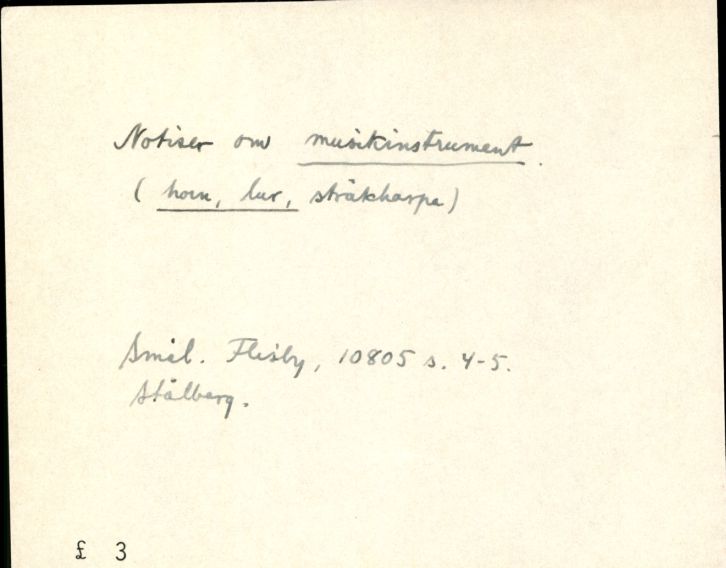 Notiser om musikinstrument.
(horn, lur, stråkharpa)
Smål. Flisby, 10805 s. 4-5.
Stålberg.
£ 3